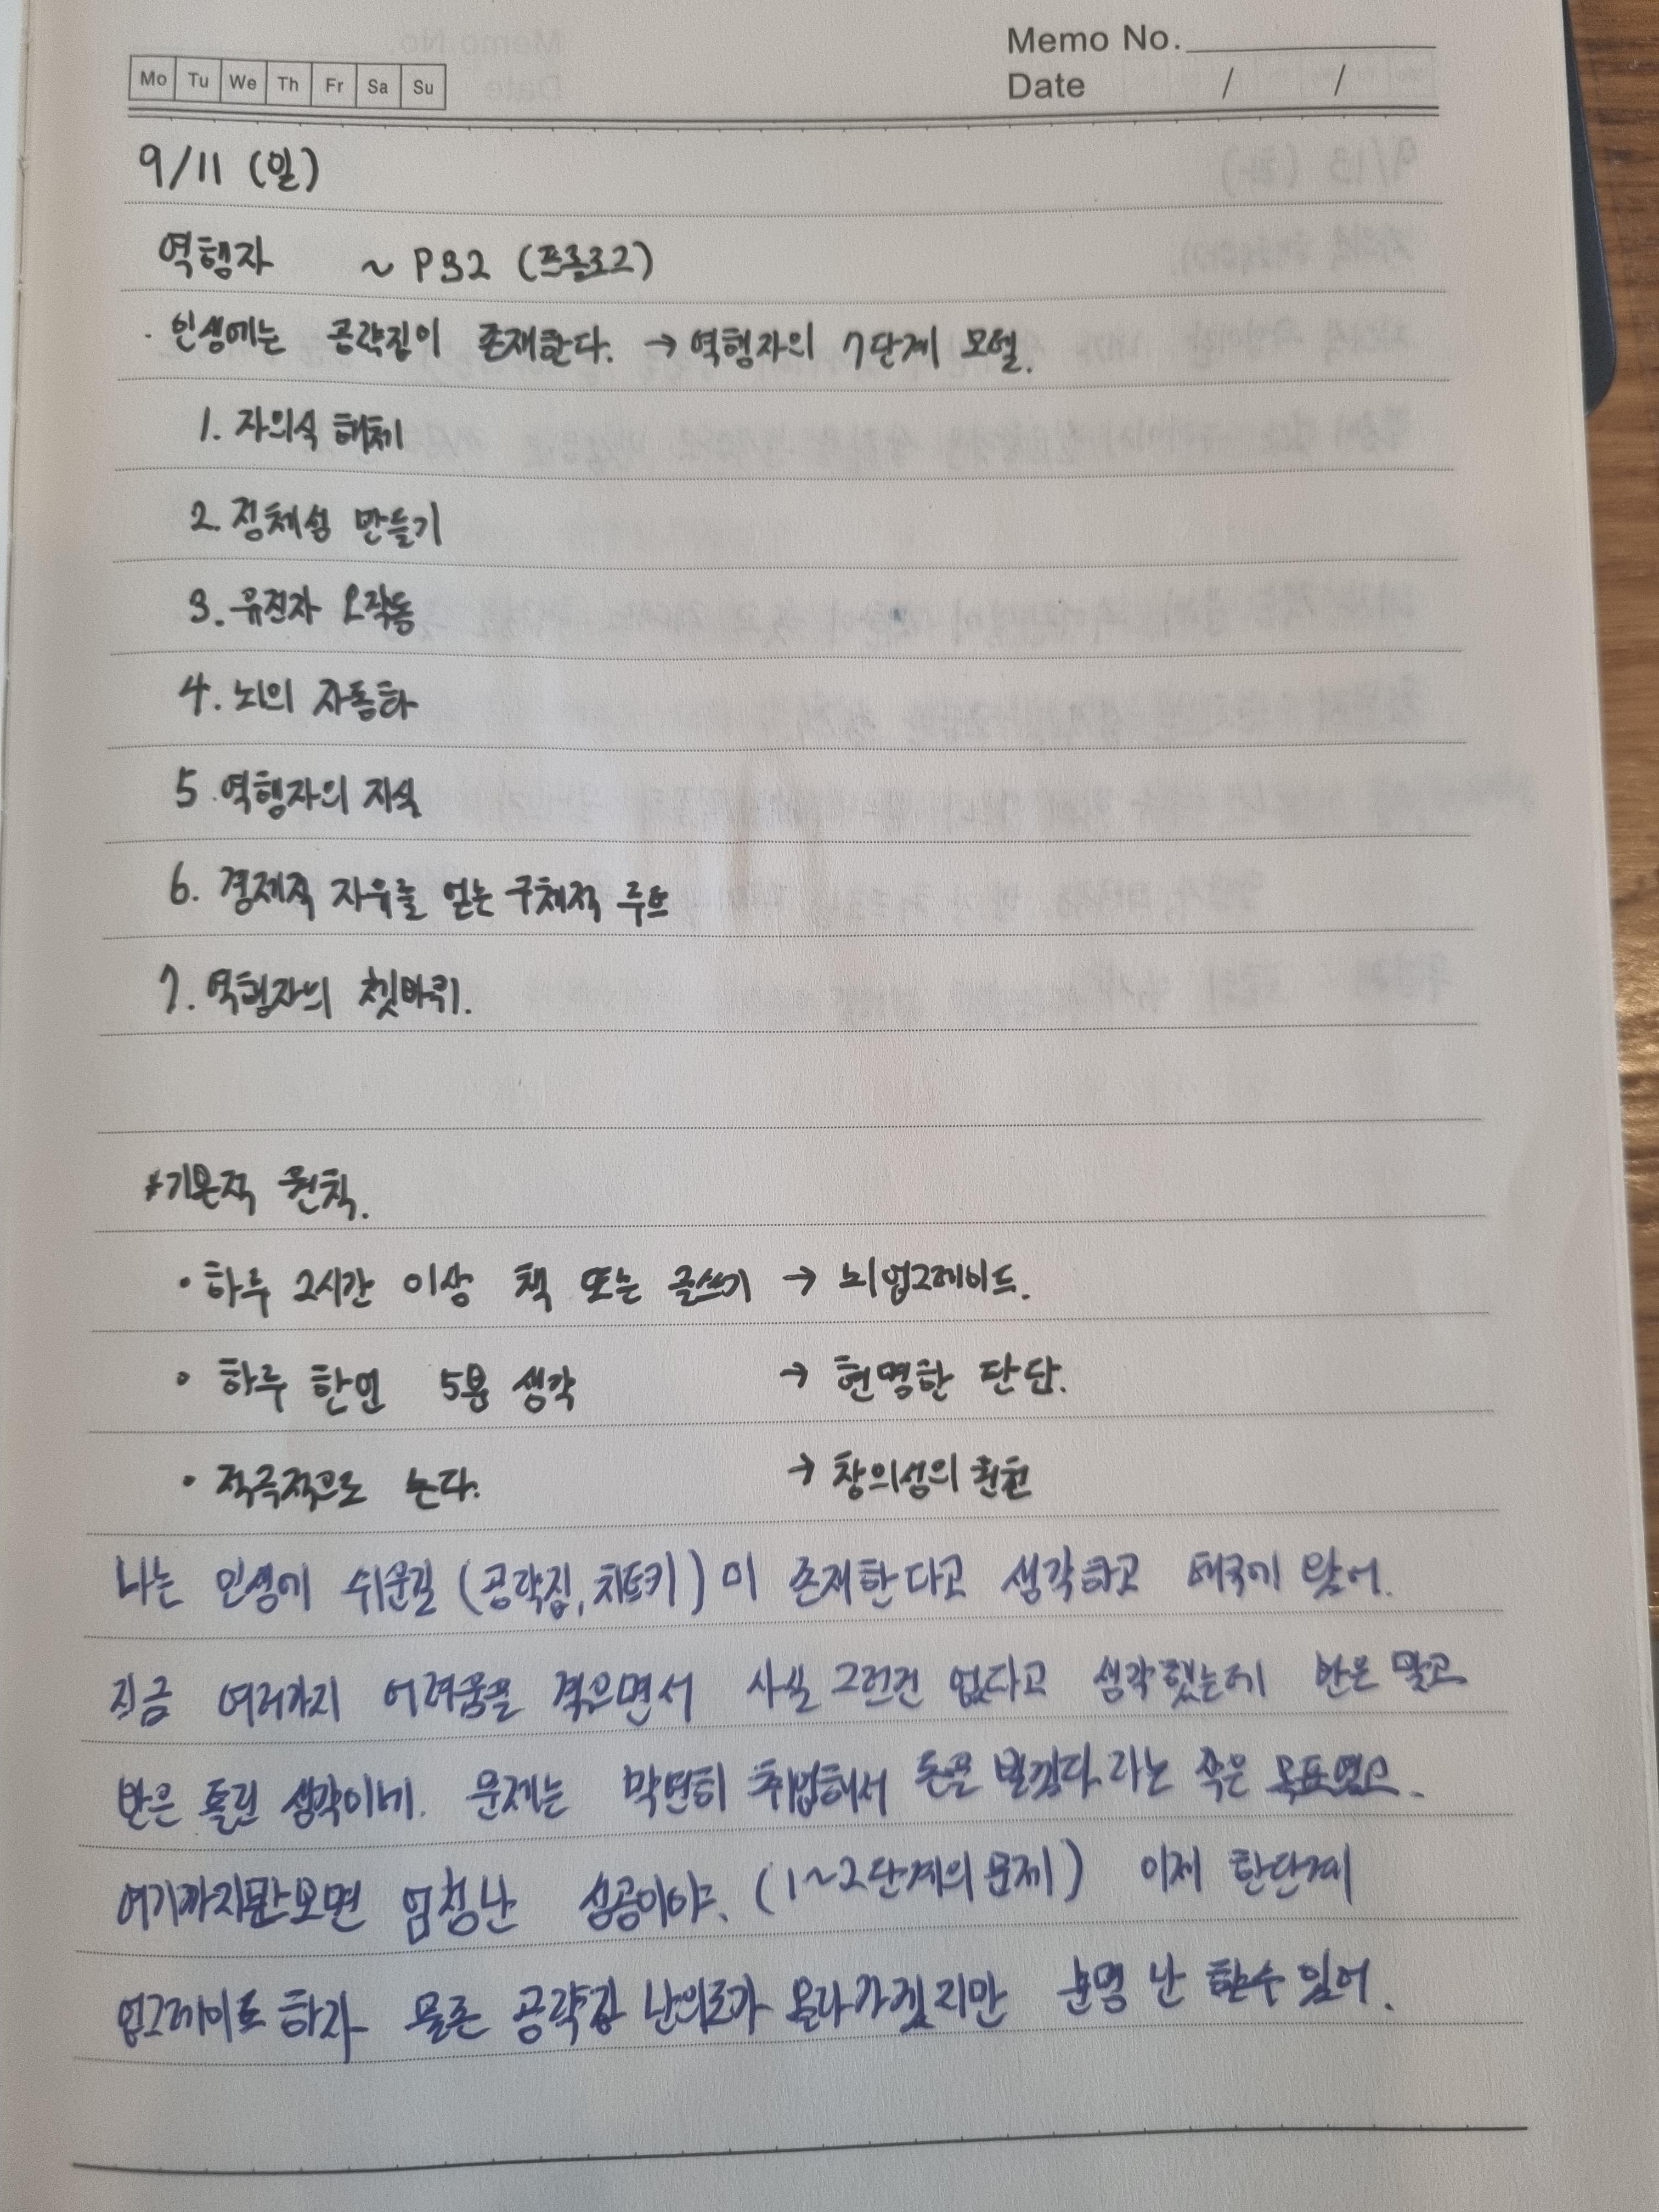 Memo No.
Mo Tu We Th Fr Sa Su
Date / /
9/11 (일)
역행자 ~ P32 (프롤로그)
· 인생에는 공략집이 존재한다. → 역행자의 7단계 모델.
1. 자의식 해체
2. 정체성 만들기
3. 유전자 오작동
4. 뇌의 자동화
5. 역행자의 지식
6. 경제적 자유를 얻는 구체적 루트
7. 역행자의 쳇바퀴.
*기본적 원칙.
• 하루 2시간 이상 책 또는 글쓰기 → 뇌 업그레이드.
• 하루 한번 5분 생각 → 현명한 판단.
• 적극적으로 논다. → 창의성의 원천
나는 인생에 쉬운길 (공략집, 치트키) 이 존재한다고 생각하고 태국에 왔어.
지금 여러가지 어려움을 겪으면서 사실 그런건 없다고 생각했는데 반은 맞고
반은 틀린 생각이네. 문제는 막연히 취업해서 돈을 벌겠다 라는 작은 목표였고
여기까지만보면 엄청난 성공이야. (1~2단계의 문제) 이제 한단계
업그레이드 하자 물론 공략집 난이도가 올라가겠지만 분명 난 할수 있어.